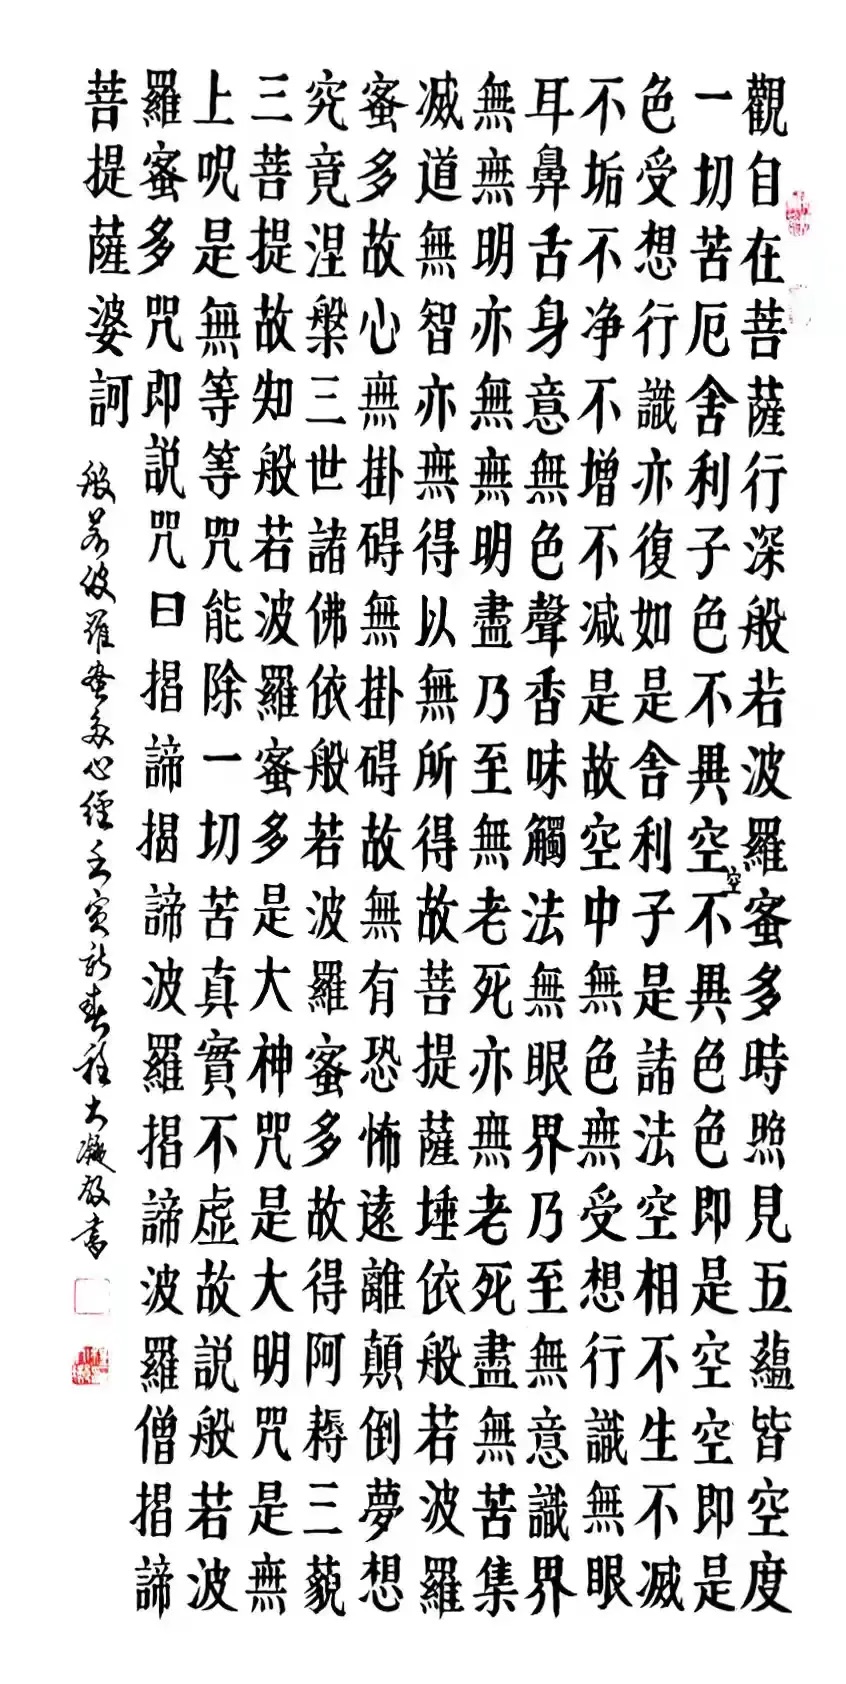 觀自在菩薩行深般若波羅蜜多時照見五蘊皆空度
一切苦厄舍利子色不異空空不異色色即是空空即是
色受想行識亦復如是舍利子是諸法空相不生不滅
不垢不净不增不减是故空中無色無受想行識無眼
耳鼻舌身意無色聲香味觸法無眼界乃至無意識界
無無明亦無無明盡乃至無老死亦無老死盡無苦集
滅道無智亦無得以無所得故菩提薩埵依般若波羅
蜜多故心無掛碍無掛碍故無有恐怖遠離顛倒夢想
究竟涅槃三世諸佛依般若波羅蜜多故得阿耨三藐
三菩提故知般若波羅蜜多是大神咒是大明咒是無
上呪是無等等咒能除一切苦真實不虚故説般若波
羅蜜多咒即説咒曰揭諦揭諦波羅揭諦波羅僧揭諦
菩提薩婆訶
般若波羅蜜多心經壬寅新春程大凝敬書